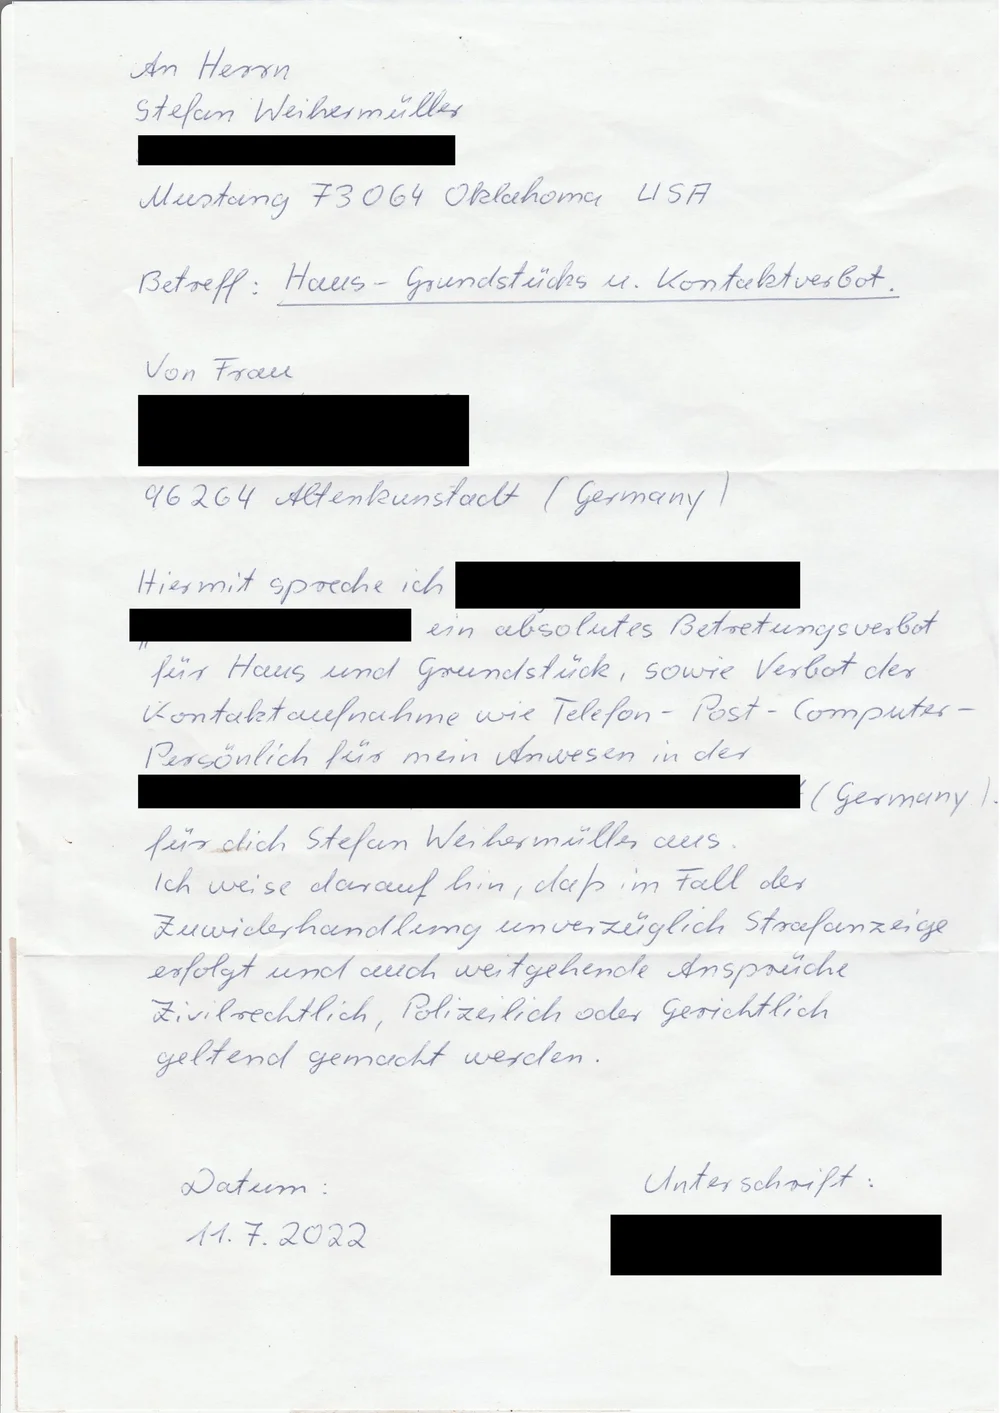 An Herrn
Stefan Weihermüller
Mustang 73064 Oklahoma USA
Betreff: Haus- Grundstücks u. Kontaktverbot.
Von Frau
96264 Altenkunstadt (Germany)
Hiermit spreche ich
ein absolutes Betretungsverbot
für Haus und Grundstück, sowie Verbot der
Kontaktaufnahme wie Telefon- Post- Computer-
Persönlich für mein Anwesen in der
(Germany).
für dich Stefan Weihermüller aus.
Ich weise darauf hin, daß im Fall der
Zuwiderhandlung unverzüglich Strafanzeige
erfolgt und auch weitgehende Ansprüche
Zivilrechtlich, Polizeilich oder Gerichtlich
geltend gemacht werden.
Datum:
Unterschrift:
11.7.2022